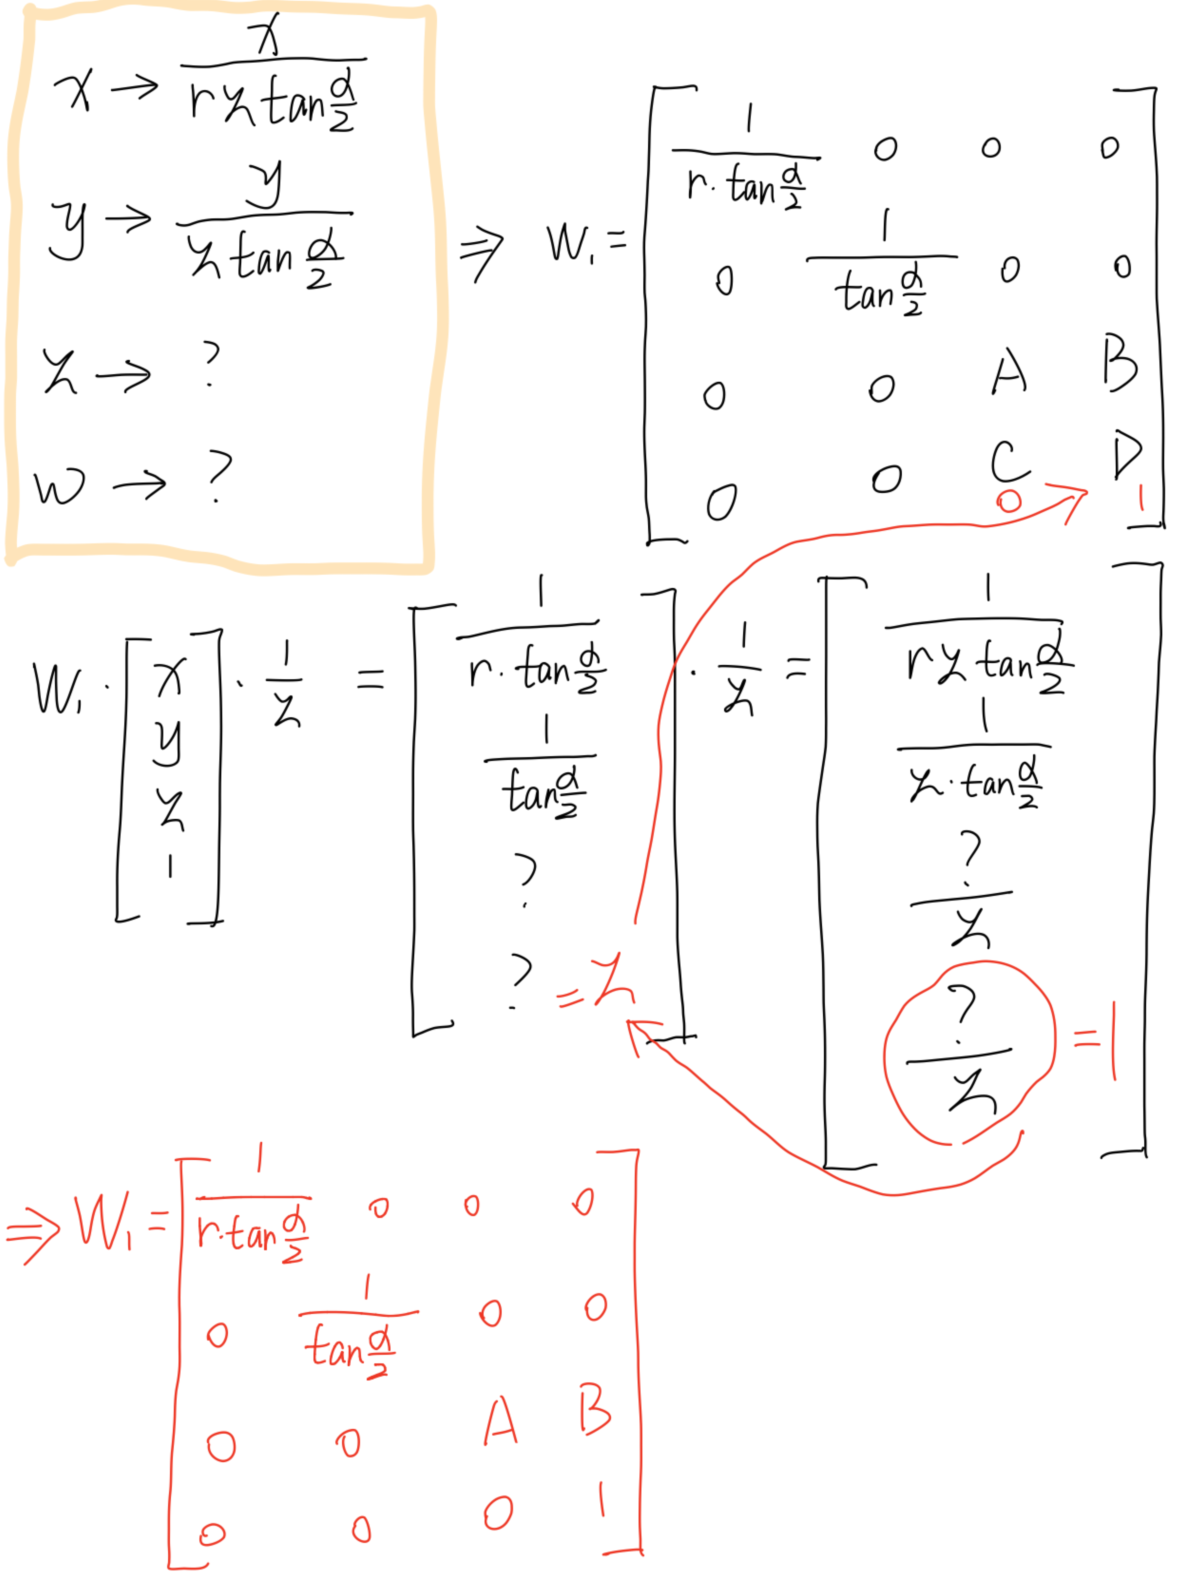 x → x / (r z tan α/2)
y → y / (z tan α/2)
z → ?
w → ?
⇒ W₁ = [ 1/(r·tan α/2) 0 0 0
0 1/(tan α/2) 0 0
0 0 A B
0 0 C D ]
0 1
W₁ · [ x y z 1 ] · 1/z = [ 1/(r·tan α/2) 1/(tan α/2) ? ? ] · 1/z = [ 1/(r z tan α/2) 1/(z·tan α/2) ?/z ?/z ]
= z
= 1
⇒ W₁ = [ 1/(r·tan α/2) 0 0 0
0 1/(tan α/2) 0 0
0 0 A B
0 0 0 1 ]